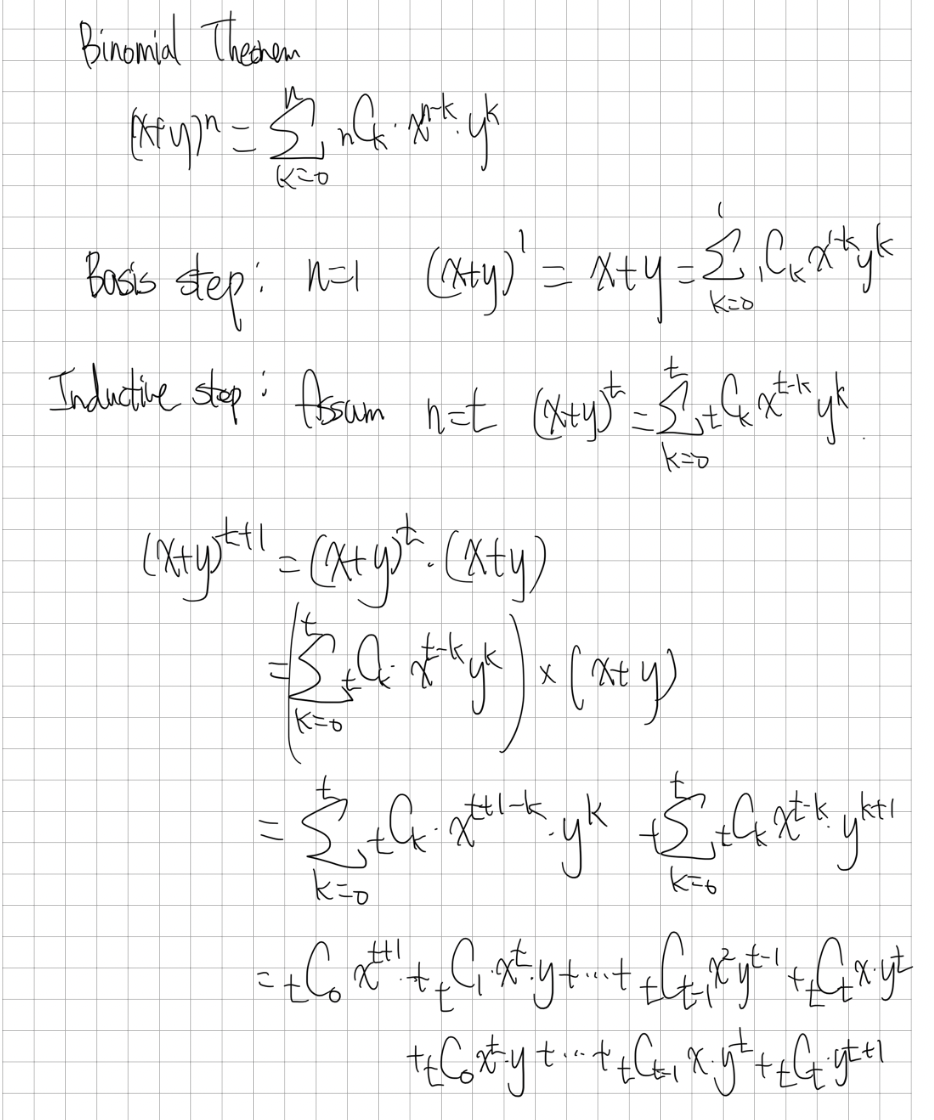 Binomial Theorem
(x+y)^n = \sum_{k=0}^{n} {}_nC_k \cdot x^{n-k} \cdot y^k
Basis step: n=1 (x+y)^1 = x+y = \sum_{k=0}^{1} {}_1C_k x^{1-k} y^k
Inductive step: Assum n=t (x+y)^t = \sum_{k=0}^{t} {}_tC_k x^{t-k} y^k
(x+y)^{t+1} = (x+y)^t \cdot (x+y)
= \left( \sum_{k=0}^{t} {}_tC_k \cdot x^{t-k} y^k \right) \times (x+y)
= \sum_{k=0}^{t} {}_tC_k \cdot x^{t+1-k} \cdot y^k + \sum_{k=0}^{t} {}_tC_k x^{t-k} \cdot y^{k+1}
= {}_tC_0 x^{t+1} + {}_tC_1 \cdot x^t \cdot y + \cdots + {}_tC_{t-1} x^2 y^{t-1} + {}_tC_t x \cdot y^t
+ {}_tC_0 x^t \cdot y + \cdots + {}_tC_{t-1} x \cdot y^t + {}_tC_t \cdot y^{t+1}